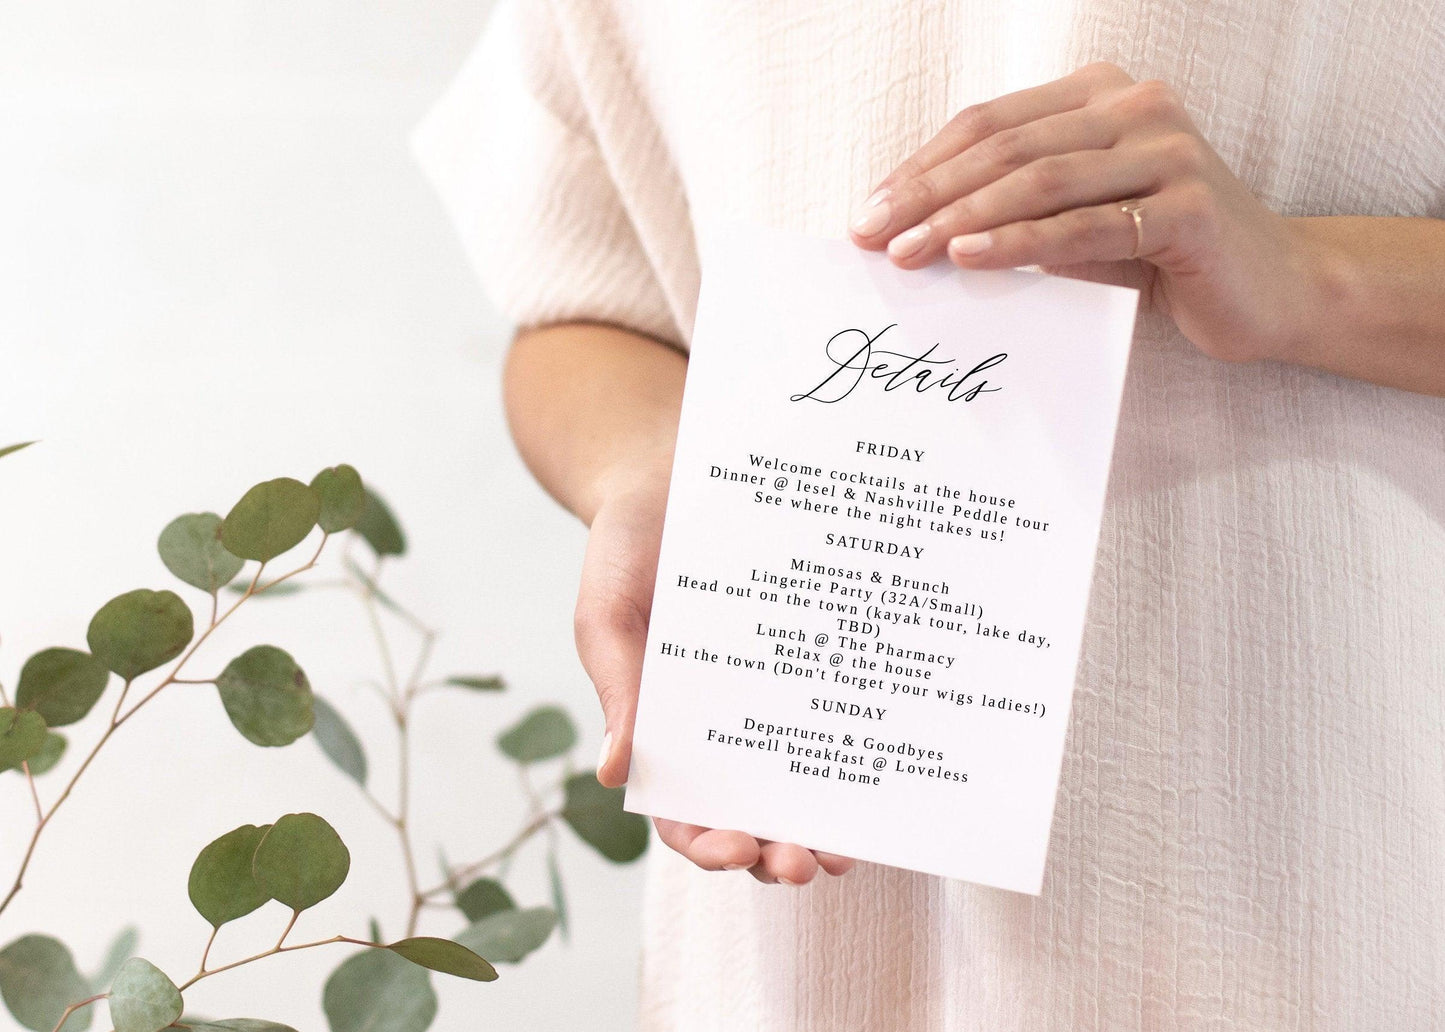 Details
FRIDAY
Welcome cocktails at the house
Dinner @ Iesel & Nashville Peddle tour
See where the night takes us!
SATURDAY
Mimosas & Brunch
Lingerie Party (32A/Small)
Head out on the town (kayak tour, lake day,
TBD)
Lunch @ The Pharmacy
Relax @ the house
Hit the town (Don't forget your wigs ladies!)
SUNDAY
Departures & Goodbyes
Farewell breakfast @ Loveless
Head home